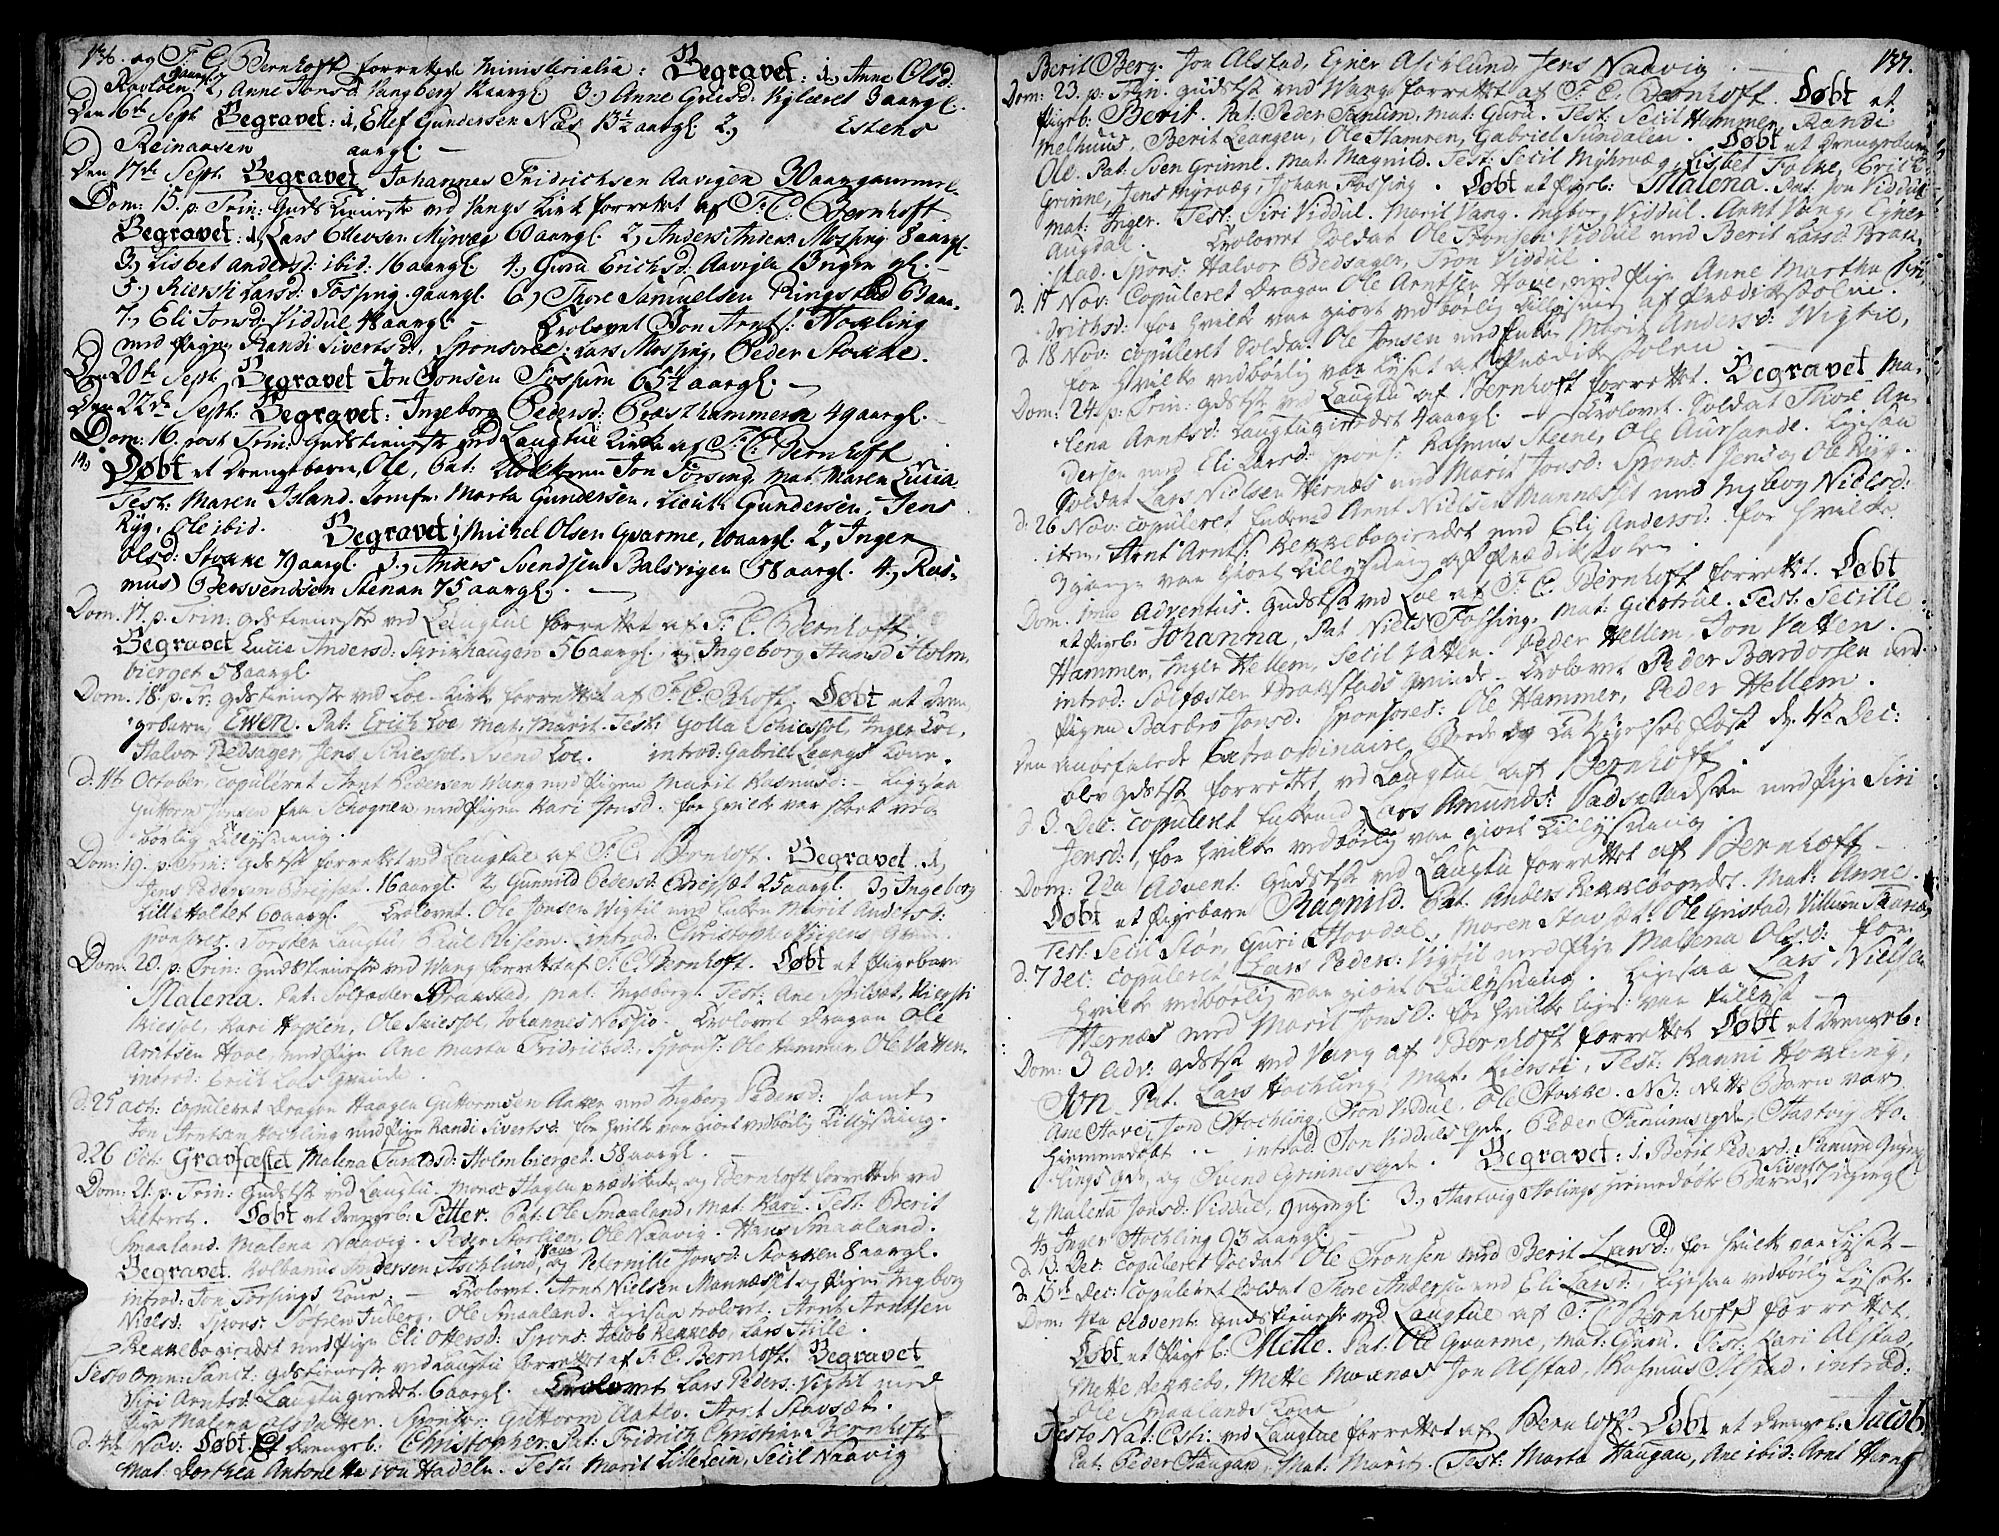 136. og F. C. Bernhoft forrettede Ministerialia: Begravet: 1, Anne Olsd:
2, Anne Jonsd: Vangberg aargl. 3, Anne Grudsd: Kylæret 3 aargl.
Den 6te Sept Begravet: 1, Ellef Gundersen Næs 13½ aargl 2, Estens
Reinaasen aargl: —
Den 17de Sept: Begravet Johannes Fridrichsen Aavigen 30 aar gammel.
Dom: 15. p: Trin: Guds tieneste ved Vangs Kirke forrettet af F. C. Bernhoft
Begravet: 1, Lars Ellevsen Myrvæg 60 aargl. 2, Anders Anders: Mosping 8 aargl.
3, Lisbet Andersd: ibid: 16 aargl. 4, Guru Erichsd: Aavigen 13 uger gl. —
5, Kiersti Larsd: Fosping 9 aargl. 6, Thore Samuelsen Ringstad 60 aar
7, Eli Jonsd: Viddul 48 aargl. — Trolovet Jon Arnts: Hoxling
med Pigen Randi Sivertsd:, Sponsores: Lars Mosping, Peder Stokke.
Den 20de Sept. Begravet Jon Jonsen Fossum 65½ aargl: —
Den 22de Sept: Begravet: Ingeborg Pedersd: Præsthammern 49 aargl.
Dom: 16. post Trin: Gudstieneste ved Laugtue Kirke af F. C. Bernhoft
Døbt et Drengebarn, Ole, Pat: Jon Forsing, Mat: Maren Lucia
Test: Maren Island. Jomfr: Marta Gundersen, Lieut: Gundersen, Jens
Ryg, Ole ibid. Begravet, Michel Olsen Gvarme, aargl. 2, Inger
Olsd: Stokke 79 aargl. 3, Anders Svendsen Balsvigen 58 aargl. 4, Ras-
mus Bersvendsen Stenan 75 aargl. —
Dom: 17. p. Trin: Gudstieneste ved Laugtue forrettet af F. C. Bernhoft
Begravet Lucie Andersd: Skrinhaugen 56 aargl, og Ingeborg Hansd Holm-
bierget 58 aargl.
Dom: 18. p. Tr: gudstieneste ved Loe Kirke forrettet af F. C. Bhoft. Døbt et Dren
gebarn, Ewen. Pat: Erich Loe Mat: Marit. Test: Golla Schiesfol, Inger Loe,
Halvor Redsager, Jens Schiesfol, Svend Loe. introd: Gabriel Leangs Kone.
d. 11te October, copuleret Arnt Pedersen Wang med Pigen Marit Rasmusd: — Ligesaa
Guttorm Jonsen fra Schognen, med Pigen Kari Jonsd. for hvilke var skeet ved-
børlig Tillysning.
Dom: 19. p. Trin: Gdstst forrettet ved Laugtue af F. C. Bernhoft. Begravet. 1,
Jens Pedersen 16 aargl. 2, Gunnild Pedersd: 25 aargl. 3, Ingeborg
Lilleholtet 60 aargl. Trolovet. Ole Jonsen Wigtil med Enken Marit Andersd:
Sponsores. Torsten Laugtu, Paul Risem. introd: Christopher Vigens
Dom: 20. p: Trin: Gudstieneste ved Wang forrettet af F. C. Bernhoft. Døbt et Pigebarn
Malena. Pat: Solfæster Braastad, mat: Ingeborg. Test: Ane Spilset, Kiersti
Kiesfol, Kari Hoplen, Ole Sciesfol, Johannes Nossio. Trolovet Dragon Ole
Arntsen Hove, med Pigen Ane Marta Fridrichsd:, Spons: Ole Hammer, Ole Vatten.
introd: Erich Loes Qvinde.
d. 25 oct: copuleret Dragon Haagen Guttormsen Aatten med Ingborg Pedersd: samt
Jon Arntsen Hochling med Pigen Randi Sivertsd: for hvilke var giort vedbørlig Tillysning.
d. 26 Oct: Gravfæstet Malena Taraldsd: Holmbierget. 58 aargl.
Dom: 21. p. Trin: Gudstst ved Laugtu, Mons: Hagen prædikede, og Bernhoft forrettede ved
Alteret. Døbt et Drengeb: Petter. Pat: Ole Smaaland, Mat: Kari. Test: Berit
Smaaland. Malena Naavig. Peder Storhen, Ole Naavig. Hans Smaaland.
Begravet. Kolbanus Andersen Aschlund, og Peternille Jonsd: Stokken 8 aargl.
introd: Jon Forsings Kone. — Trolovet. Arnt Nielsen Mannæset og Pigen Ingborg
Nielsd: Spons: Søfren Tuberg, Ole Smaaland. Ligesaa trolovet. Arnt Arntsen
Reknebogierdet med Pigen Eli Ottersd: Spons: Jacob Reknebo, Lars Stille.
Festo Omn: Sanct: gdstieneste ved Laugtu forrettet af F. C. Bernhoft. Begravet
Siri Arntsd: Laugtugierdet 6 aargl. Trolovet Lars Peders: Vigtil med
Pigen Malena Olsd: Sponsor: Guttorm Aatten. Arnt Stavsæt.
d. 4de Nov: Døbt et Drengeb: Christopher. Pat: Fridrich Christian Bernhoft
Mat: Dorthea Antonetta von Hadeln. Test: Marit Lilleloin, Secil Naavig
137.
Berit Berg. Jon Alstad, Egner Aschlund, Jens Naavig. —
Dom: 23. p. Trin: gudstst ved Wang forrettet af F. C. Bernhoft. Døbt et
Pigeb: Berit. Pat: Peder Fanum, mat: Guru. Test: Secil Hammer, Randi
Melhuus, Berit Leangen, Ole Hamren, Gabriel Sundalen. Døbt et Drengebarn
Ole. Pat: Sven Grinne. Mat: Magnild. Test: Secil Myhrvæg, Lisbet Falke, Erich
Grinne, Jens Myrvæg, Johan Fosping. Døbt et Pigeb: Malena. Pat: Jon Viddul
mat: Inger. Test: Siri Viddul. Marit Vang. Ingborg Viddul. Arnt Vang, Egner
Augdal. Trolovet Soldat Ole Tronsen Viddul med Berit Larsd: Braa
stad. Spons: Halvor Redsager, Tron Viddul.
d. 17 Nov: Copuleret Dragon Ole Arntsen Hove, med Pigen Anne Martha Fri
drichsd: for hvilke var giort vedbørlig Tillysning af Prædikestolen.
d. 18 Nov: copuleret Soldat Ole Jonsen med Enken Marit Andersd: Wigtil,
for hvilke vedbørlig var lyset af Prædikestolen —
Dom: 24. p: Trin: gdstst ved Laugtu af Bernhoft forrettet. Begravet Ma-
lena Arntsd: Laugtugierdet 4 aargl. — Trolovet. Soldat Thore An-
dersen med Eli Larsd: Spons: Rasmus Steene, Ole Aursande. Ligesaa
Soldat Lars Nielsen Hernæs med Marit Jonsd: Spons: Jens og Ole Ryg.
d. 26 Nov: copuleret Enkemd Arnt Nielsen Mannæset med Ingborg Nielsd:
item, Arnt Arnts: Reknebogierdet med Eli Andersd: for hvilke
3 gange var giort Tillysning af Prædikestolen.
Dom: 1ma Adventus. Gudstst ved Loe af F. C. Bernhoft forrettet. Døbt
et Pigeb: Johanna, Pat: Niels Fossing, Mat: Giertrud. Test: Secille
Hammer, Inger Hellem, Secil Vatten. Peder Hellem, Jon Vatten.
introd: Solfæster Braastads Qvinde. Trolovet Peder Bardossen med
Pigen Barbro Jonsd: Sponsores: Ole Hammer, Peder Hellem.
Den anbefalede Extraordinaire Bede og Taksigelses Fest d. 1ste Dec:
blev gdstst forrettet ved Laugtue af Bernhoft.
d. 3 Dec: copuleret Enkemd Lars Amunds: med Pige Siri
Jensd:, for hvilke vedbørlig var giort Tillysning.
Dom: 2da Advent: Gudstst ved Laugtu forrettet af Bernhoft —
Døbt et Pigebarn Ragnild. Pat: Anders Reknebogierdet. Mat: Anne.
Test: Secil Stør, Guri Hovdal, Maren Ole Gristad, Villum
d. 7 Dec: copuleret Lars Peders: Vigtil med Pige Malena Olsd: for
hvilke vedbørlig var giort Tillysning. Ligesaa Lars Nielsen
Hernæs med Marit Jonsd: for hvilke liges: var tillyst —
Dom: 3 adv: gdstst ved Vang af Bernhoft forrettet Døbt et Drengeb:
Jon. Pat. Lars Hochling, Mat: Kiersti, Test: Ranni Hoxling,
Ane Hove, Jon Hochling, Tron Viddul. Ole Stokke. NB: dette Barn var
hiemmedøbt. — introd: Jon Viddul's qde, Peder Fanums qde, Hartvig Ho-
lings qde, og Svend Grinnes qde. Begravet: 1. Berit Pedersd: Fanum
2, Malena Jonsd: Viddul, 9 ugergl 3, Hartvig Holings hiemmedøbte Barn Sivert, 7 ugergl
4, Inger Hochling 93 aargl. —
d. 13. Dec: copuleret Soldat Ole Tronsen med Berit Larsd: for hvilke var lyset —
d. 15de Dec: copuleret Soldat Thore Andersen med Eli Larsd:, ligesaa vedbørlig lyset.
Dom: 4ta Advent: gudstieneste ved Laugtue af F. C. Bernhoft forrettet.
Døbt et Pigeb: Mette. Pat: Ole Gvarme, Mat: Guru. Test: Kari Alstad,
Mette Reknebo, Mette Moxnæs Jon Alstad, Rasmus Alstad. introd:
Ole Smaalands Kone
Festo Nat: Xsti: ved Laugtue forrettet af Bernhoft. Døbt et Drengeb: Jacob
Pat: Peder Haugan, Mat: Marit. Test: Marta Haugan, Ane ibid: Arnt Hernæs